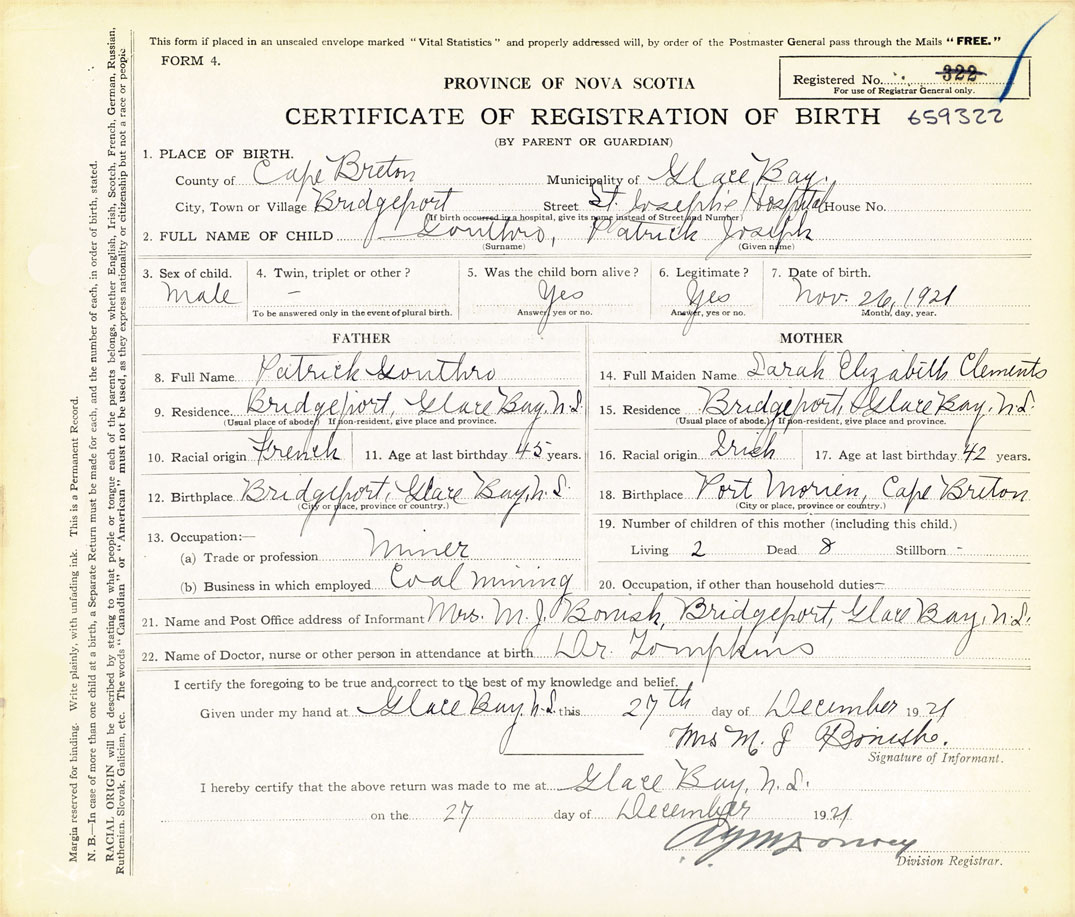 This form if placed in an unsealed envelope marked "Vital Statistics" and properly addressed will, by order of the Postmaster General pass through the Mails "FREE."
FORM 4.
Registered No. 322
For use of Registrar General only.
PROVINCE OF NOVA SCOTIA
CERTIFICATE OF REGISTRATION OF BIRTH 659322
(BY PARENT OR GUARDIAN)
1. PLACE OF BIRTH.
County of Cape Breton Municipality of Glace Bay.
City, Town or Village Bridgeport Street St. Joseph's Hospital House No.
(If birth occurred in a hospital, give its name instead of Street and Number)
2. FULL NAME OF CHILD Gouthro, Patrick Joseph
(Surname) (Given name)
3. Sex of child. 4. Twin, triplet or other? 5. Was the child born alive? 6. Legitimate? 7. Date of birth.
Male - Yes Yes Nov. 26, 1921
To be answered only in the event of plural birth. Answer, yes or no. Answer, yes or no. Month, day, year.
FATHER
8. Full Name Patrick Gouthro
9. Residence Bridgeport, Glace Bay, N.S.
(Usual place of abode.) If non-resident, give place and province.
10. Racial origin French 11. Age at last birthday 45 years.
12. Birthplace Bridgeport, Glace Bay, N.S.
(City or place, province or country.)
13. Occupation:—
(a) Trade or profession Miner
(b) Business in which employed Coal mining
MOTHER
14. Full Maiden Name Sarah Elizabeth Clements
15. Residence Bridgeport, Glace Bay, N.S.
(Usual place of abode.) If non-resident, give place and province.
16. Racial origin Irish 17. Age at last birthday 42 years.
18. Birthplace Port Morien, Cape Breton
(City or place, province or country.)
19. Number of children of this mother (including this child.)
Living 2 Dead 8 Stillborn -
20. Occupation, if other than household duties—
21. Name and Post Office address of Informant Mrs. M. J. Bonish, Bridgeport, Glace Bay, N.S.
22. Name of Doctor, nurse or other person in attendance at birth Dr. Tompkins
I certify the foregoing to be true and correct to the best of my knowledge and belief.
Given under my hand at Glace Bay, N.S. this 27th day of December 1921
Mrs M. J
Signature of Informant.
I hereby certify that the above return was made to me at Glace Bay, N.S.
on the 27 day of December 1921
Division Registrar.
Margin reserved for binding. Write plainly, with unfading ink. This is a Permanent Record.
N. B.—In case of more than one child at a birth, a Separate Return must be made for each, and the number of each, in order of birth, stated.
RACIAL ORIGIN will be described by stating to what people or tongue each of the parents belongs, whether English, Irish, Scotch, French, German, Russian,
Ruthenian, Slovak, Galician, etc. The words "Canadian" or "American" must not be used, as they express nationality or citizenship but not a race or people